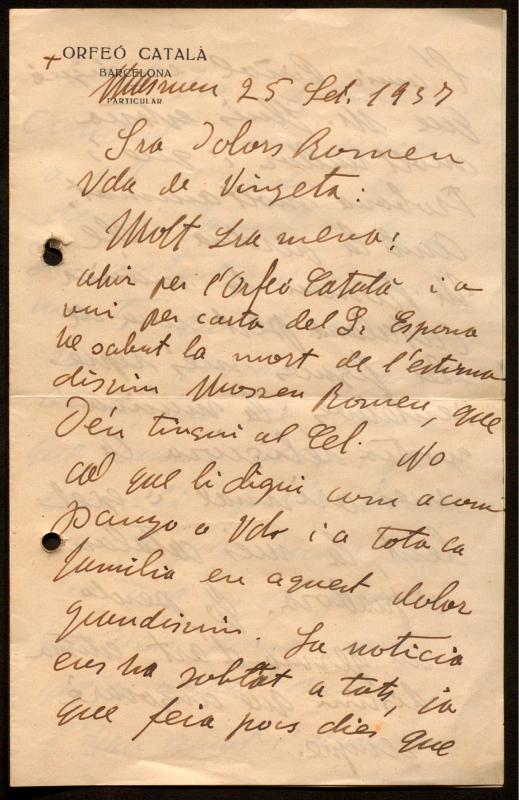 + ORFEÓ CATALÀ
BARCELONA
PARTICULAR
25 Set. 1937
Sra Dolors Romeu
Vda de Vingeta:
Molt Sra meva:
ahir per l'Orfeó Català i a
vui per carta del Sr Espona
he sabut la mort de l'estima
dissim Mossen Romeu, que
Déu tingui al Cel. No
cal que li digui com acom
panyo a Vdr i a tota la
familia en aquest dolor
grandissim. La noticia
ens ha sobtat a tots, ja
que feia pocs dies que